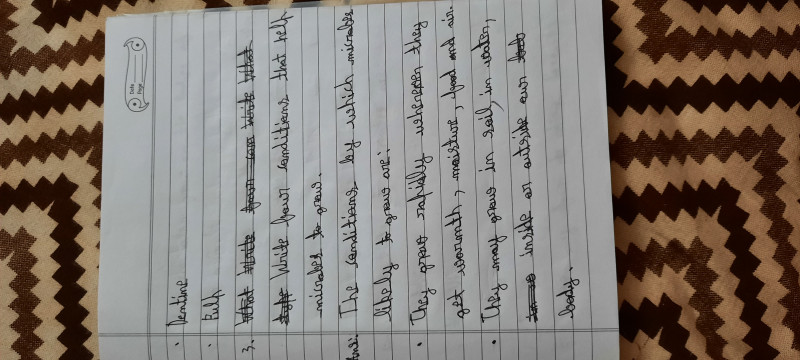 Date
Page
• Dentine
• Pulp
3. What Write four can Write What
Write four conditions that help
microbes to grow.
Ans: The conditions by which microbes
likely to grow are:
• They grow rapidly whenever they
get warmth, moisture, food and air.
• They may grow in soil, in water,
inside or outside our
body.